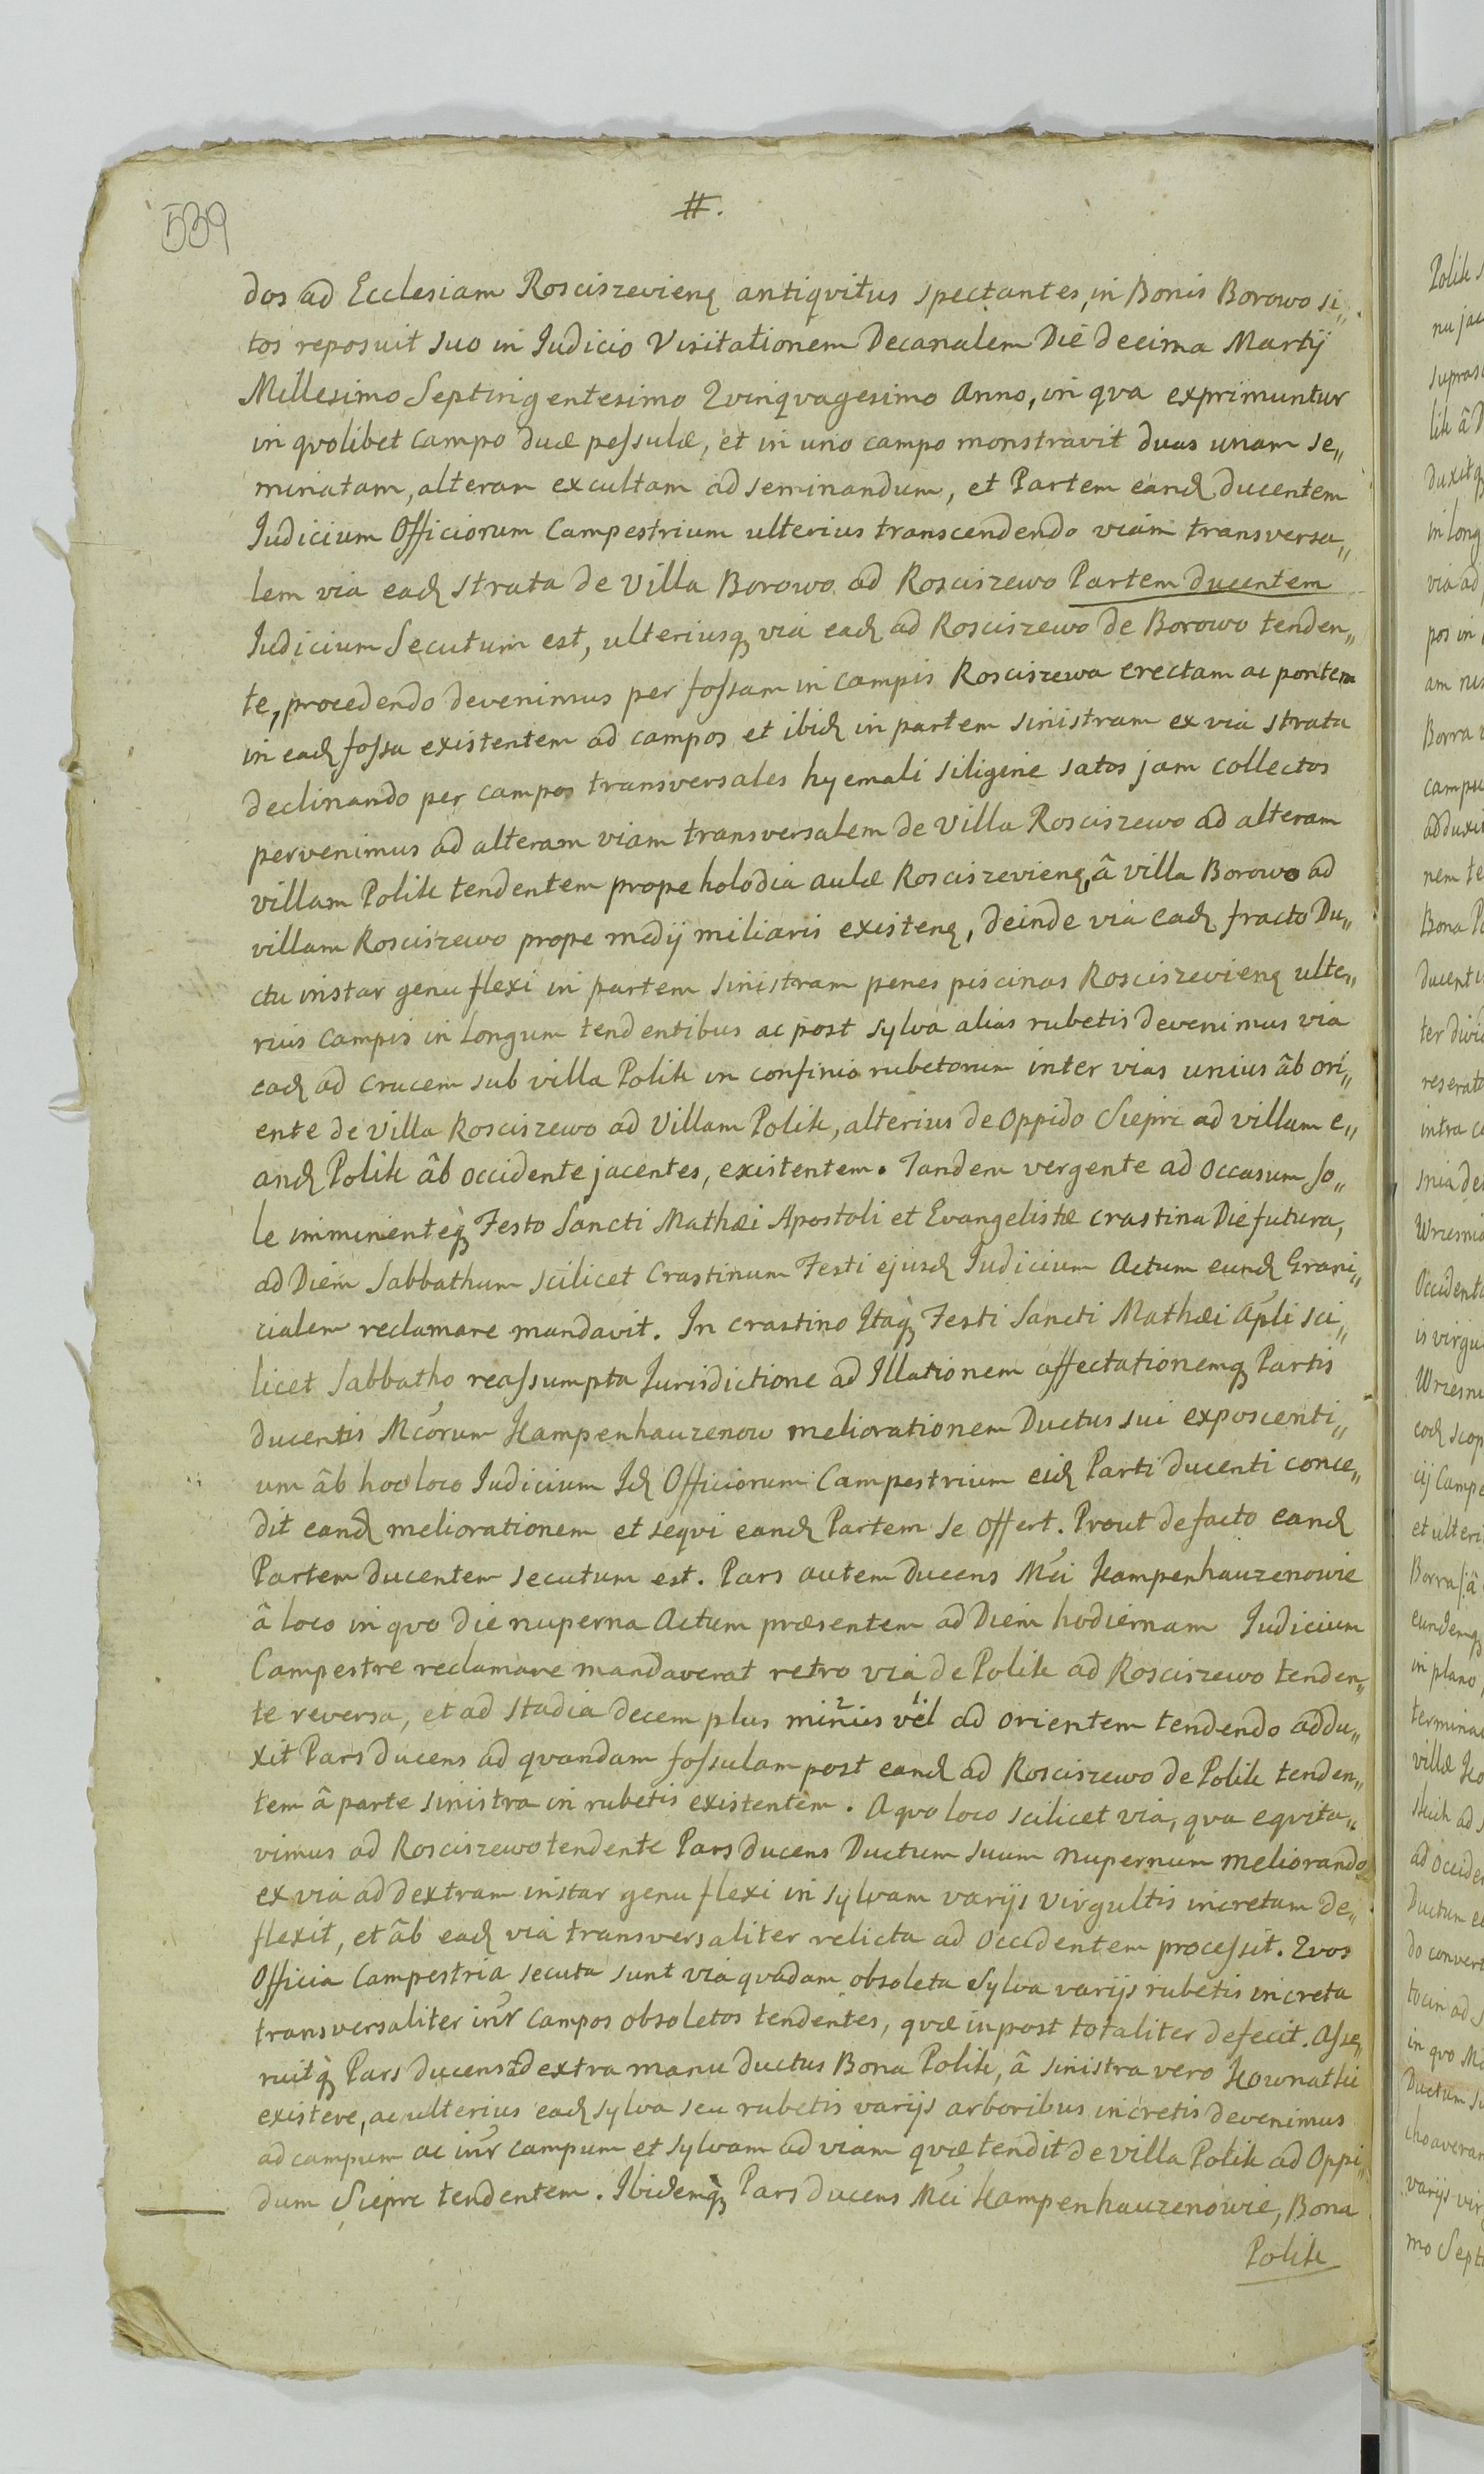 539
#.
dos ad Ecclesiam Rosciszevienq antiqvitus spectantes, in Bonis Borowo si„
tos reposuit suo in Judicio Visitationem Decanalem Die decima Martij
Millesimo Septingentesimo Qvinqvagesimo Anno, in qva exprimuntur
in qvolibet campo duæ pessulæ, et in uno campo monstravit duas unam se„
minatam, alteram excultam ad seminandum, et Partem eandȝ ducentem
Judicium Officiorum Campestrium ulterius transcendendo viam transversa„
lem via eadȝ strata de Villa Borowo ad Rosciszewo Partem ducentem
Judicium Secutum est, ulteriusqȝ via eadȝ ad Rosciszewo de Borowo tenden„
te, procedendo devenimus per fossam in campis Rosciszewa erectam ac pontem
in eadȝ fossa existentem ad campos et ibidȝ in partem sinistram ex via strata
declinando per campos transversales hyemali siligine satos jam collectos
pervenimus ad alteram viam transversalem de Villa Rosciszewo ad alteram
villam Polik tendentem prope holodia aulæ Rosciszevienq, â villa Borowo ad
villam Rosciszewo prope medij miliaris existenq, deinde via eadȝ fracto Du„
ctu instar genu flexi in partem sinistram penes piscinas Rosciszevienq ulte„
rius campis in longum tendentibus ac post sylva alias rubetis devenimus via
eadȝ ad crucem sub villa Polik in confinio rubetorum inter vias unius âb ori„
ente de villa Rosciszewo ad Villam Polik, alterius de Oppido Sieprc ad villam e„
andȝ Polik âb occidente jacentes, existentem. Tandem vergente ad occasum so„
le imminentèqȝ Festo Sancti Mathæi Apostoli et Evangelistæ crastina Die futura,
ad Diem Sabbathum scilicet Crastinum Festi ejusdȝ Judicium Actum eundȝ Grani„
cialem reclamare mandavit. In crastino Itaqȝ Festi Sancti Mathæi Apli sci„
licet Sabbatho reassumpta Jurisdictione ad Illationem affectationemqȝ Partis
ducentis Mcorum Kampenhauzenow meliorationem Ductus sui exposcenti„
um âb hoc loco Judicium Idȝ Officiorum Campestrium eidȝ Parti ducenti conce„
dit eandȝ meliorationem et seqvi eandȝ Partem se offert. Prout de facto eandȝ
Partem ducentem secutum est. Pars autem ducens Mci Kampenhauzenowie
â loco in qvo die nuperna Actum præsentem ad Diem hodiernam Judicium
Campestre reclamare mandaverat retro via de Polik ad Rosciszewo tenden„
te reversa, et ad stadia decem plus minus 2 vel 1 ad orientem tendendo addu„
xit Pars ducens ad qvandam fossulam post eandȝ ad Rosciszewo de Polik tenden„
tem â parte sinistra in rubetis existentem. A qvo loco scilicet via, qva eqvita„
vimus ad Rosciszewo tendente Pars ducens Ductum suum nupernum meliorando
ex via ad dextram instar genu flexi in sylvam varijs virgultis incretam de„
flexit, et âb eadȝ via transversaliter relicta ad Occidentem processit. Qvos
Officia Campestria secuta sunt via qvadam obsoleta Sylva varijs rubetis increta
transversaliter intr campos obsoletos tendentes, qvæ in post totaliter defecit. Asse„
ruitqȝ Pars ducens ad dextra manu ductus Bona Polik, â sinistra vero Kownatki
existere, ac ulterius eadȝ sylva seu rubetis varijs arboribus incretis devenimus
ad campum ac intr campum et sylvam ad viam qvæ tendit de villa Polik ad Oppi„
dum Sieprc tendentem. Ibidemqȝ Pars ducens Mci Kampenhauzenowie, Bona
Polik